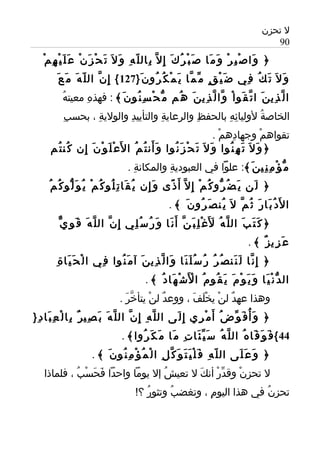 لا تحزن
90
﴿ وَاصْبِرْ وَمَا صَبْرُكَ إِلاَّ بِاللّهِ وَلاَ تَحْزَنْ عَلَيْهِمْ
وَلاَ تَكُ فِي ضَيْقٍ مِّمَّا يَمْكُرُونَ{127} إِنَّ اللّهَ مَعَ
الَّذِينَ اتَّقَواْ وَّالَّذِينَ هُم مُّحْسِنُونَ﴾ : فهذهِ معيتهُ
الخاصةُ لأوليائِهِ بالحفظِ والرعايةِ والتأييدِ والولايةِ ، بحسبِ
تقواهمْ وجهادِهمْ .
﴿ وَلاَ تَهِنُوا وَلاَ تَحْزَنُوا وَأَنتُمُ الأَعْلَوْنَ إِن كُنتُم
مُّؤْمِنِينَ ﴾: علوًّا في العبوديةِ والمكانةِ .
﴿ لَن يَضُرُّوكُمْ إِلاَّ أَذًى وَإِن يُقَاتِلُوكُمْ يُوَلُّوكُمُ
الأَدُبَارَ ثُمَّ لاَ يُنصَرُونَ ﴾ .
﴿ كَتَبَ اللَّهُ لَأَغْلِبَنَّ أَنَا وَرُسُلِي إِنَّ اللَّهَ قَوِيٌّ
عَزِيزٌ ﴾ .
﴿ إِنَّا لَنَنصُرُ رُسُلَنَا وَالَّذِينَ آمَنُوا فِي الْحَيَاةِ
الدُّنْيَا وَيَوْمَ يَقُومُ الْأَشْهَادُ ﴾ .
وهذا عهدٌ لنْ يخْلَفَ ، ووعدٌ لنْ يتأخَّرَ .
﴿ وَأُفَوِّضُ أَمْرِي إِلَى اللَّهِ إِنَّ اللَّهَ بَصِيرٌ بِالْعِبَادِ{
44} فَوَقَاهُ اللَّهُ سَيِّئَاتِ مَا مَكَرُوا﴾ .
﴿ وَعَلَى اللّهِ فَلْيَتَوَكَّلِ الْمُؤْمِنُونَ ﴾ .
لا تحزنْ وقدِّرْ أنكَ لا تعيشُ إلا يومًا واحدًا فَحَسْبُ ، فلماذا
تحزنُ في هذا اليومِ ، وتغضبُ وتثورُ ؟!